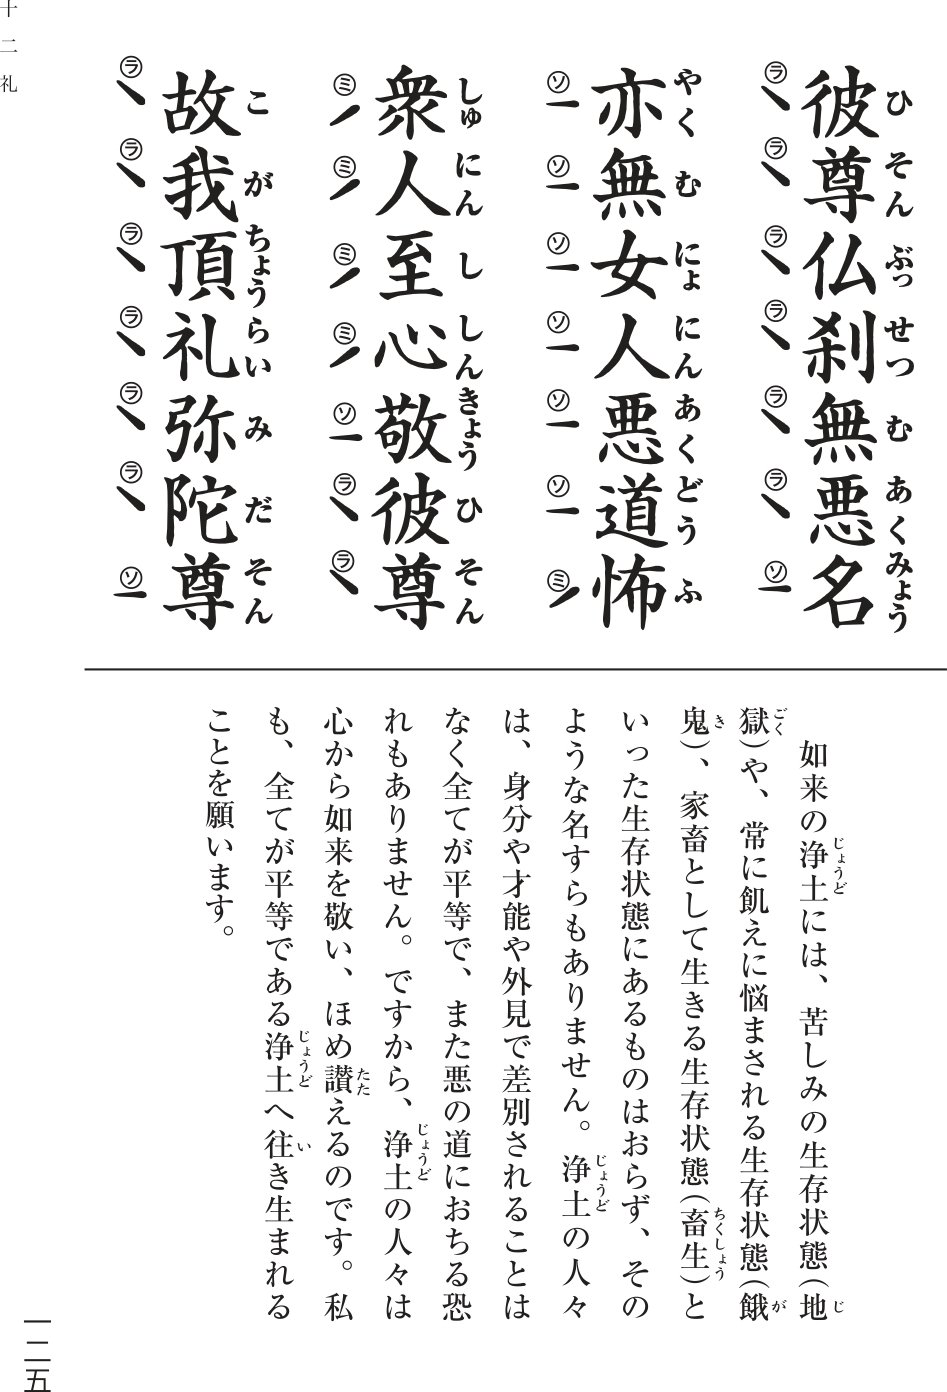 ひ そん ぶっ せつ む あく みょう
彼尊仏刹無悪名
㋶ ㋶ ㋶ ㋶ ㋶ ㋶ ㋞
やく む にょ にん あく どう ふ
亦無女人悪道怖
㋞ ㋞ ㋞ ㋞ ㋞ ㋞ ㋯
しゅ にん し しん きょう ひ そん
衆人至心敬彼尊
㋯ ㋯ ㋯ ㋯ ㋞ ㋶ ㋶
こ が ちょう らい み だ そん
故我頂礼弥陀尊
㋶ ㋶ ㋶ ㋶ ㋶ ㋶ ㋞
じょうど じ
如来の浄土には、苦しみの生存状態(地
ごく が
獄)や、常に飢えに悩まされる生存状態(餓
き ちくしょう
鬼)、家畜として生きる生存状態(畜生)と
いった生存状態にあるものはおらず、その
じょうど
ような名すらもありません。浄土の人々
は、身分や才能や外見で差別されることは
なく全てが平等で、また悪の道におちる恐
じょうど
れもありません。ですから、浄土の人々は
たた
心から如来を敬い、ほめ讃えるのです。私
じょうど い
も、全てが平等である浄土へ往き生まれる
ことを願います。
十二礼
一二五